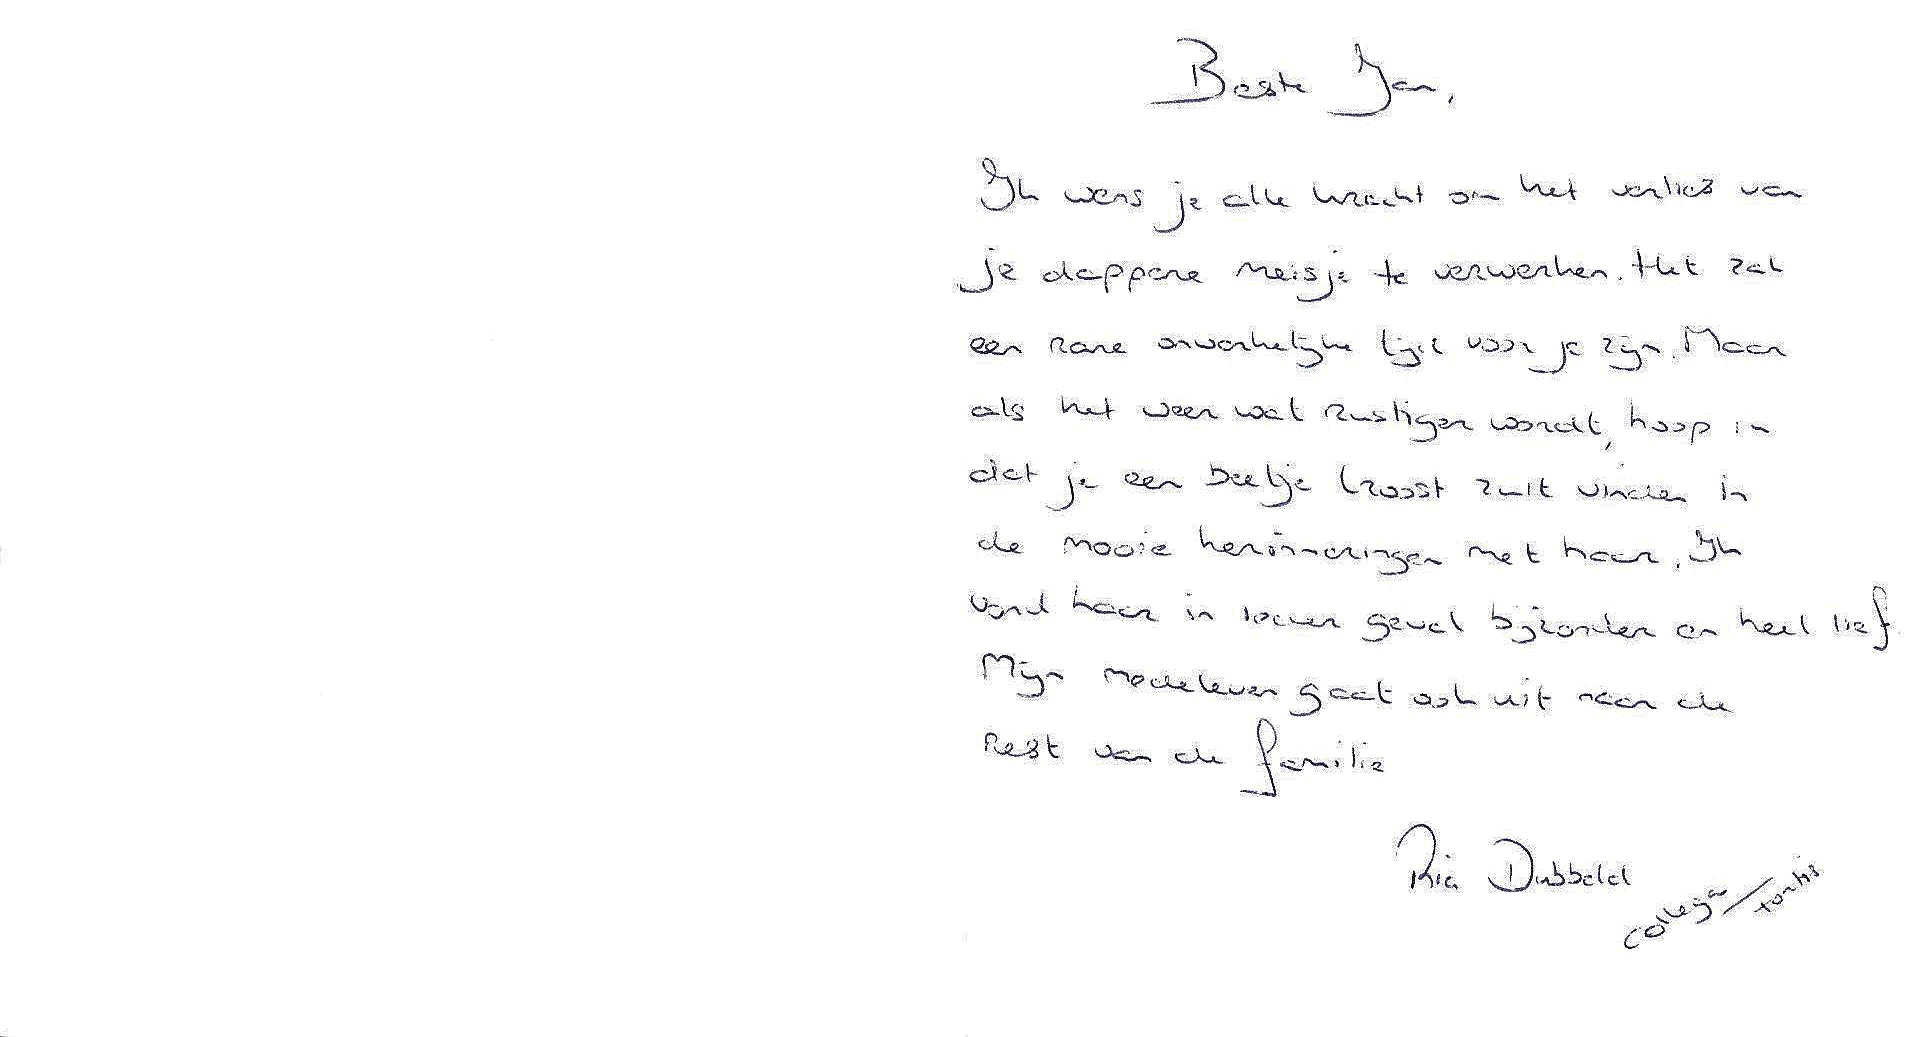 Beste Jan,
Ik wens je alle kracht om het verlies van
je dappere meisje te verwerken. Het zal
een rare onwerkelijke tijd voor je zijn. Maar
als het weer wat rustiger wordt, hoop ik
dat je een beetje troost zult vinden in
de mooie herinneringen met haar. Ik
vond haar in ieder geval bijzonder en heel lief.
Mijn medeleven gaat ook uit naar de
rest van de familie
Ria Dubbeld
collega / Fortis